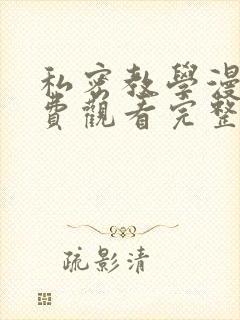 私密教學漫
費觀看完整
疏影清